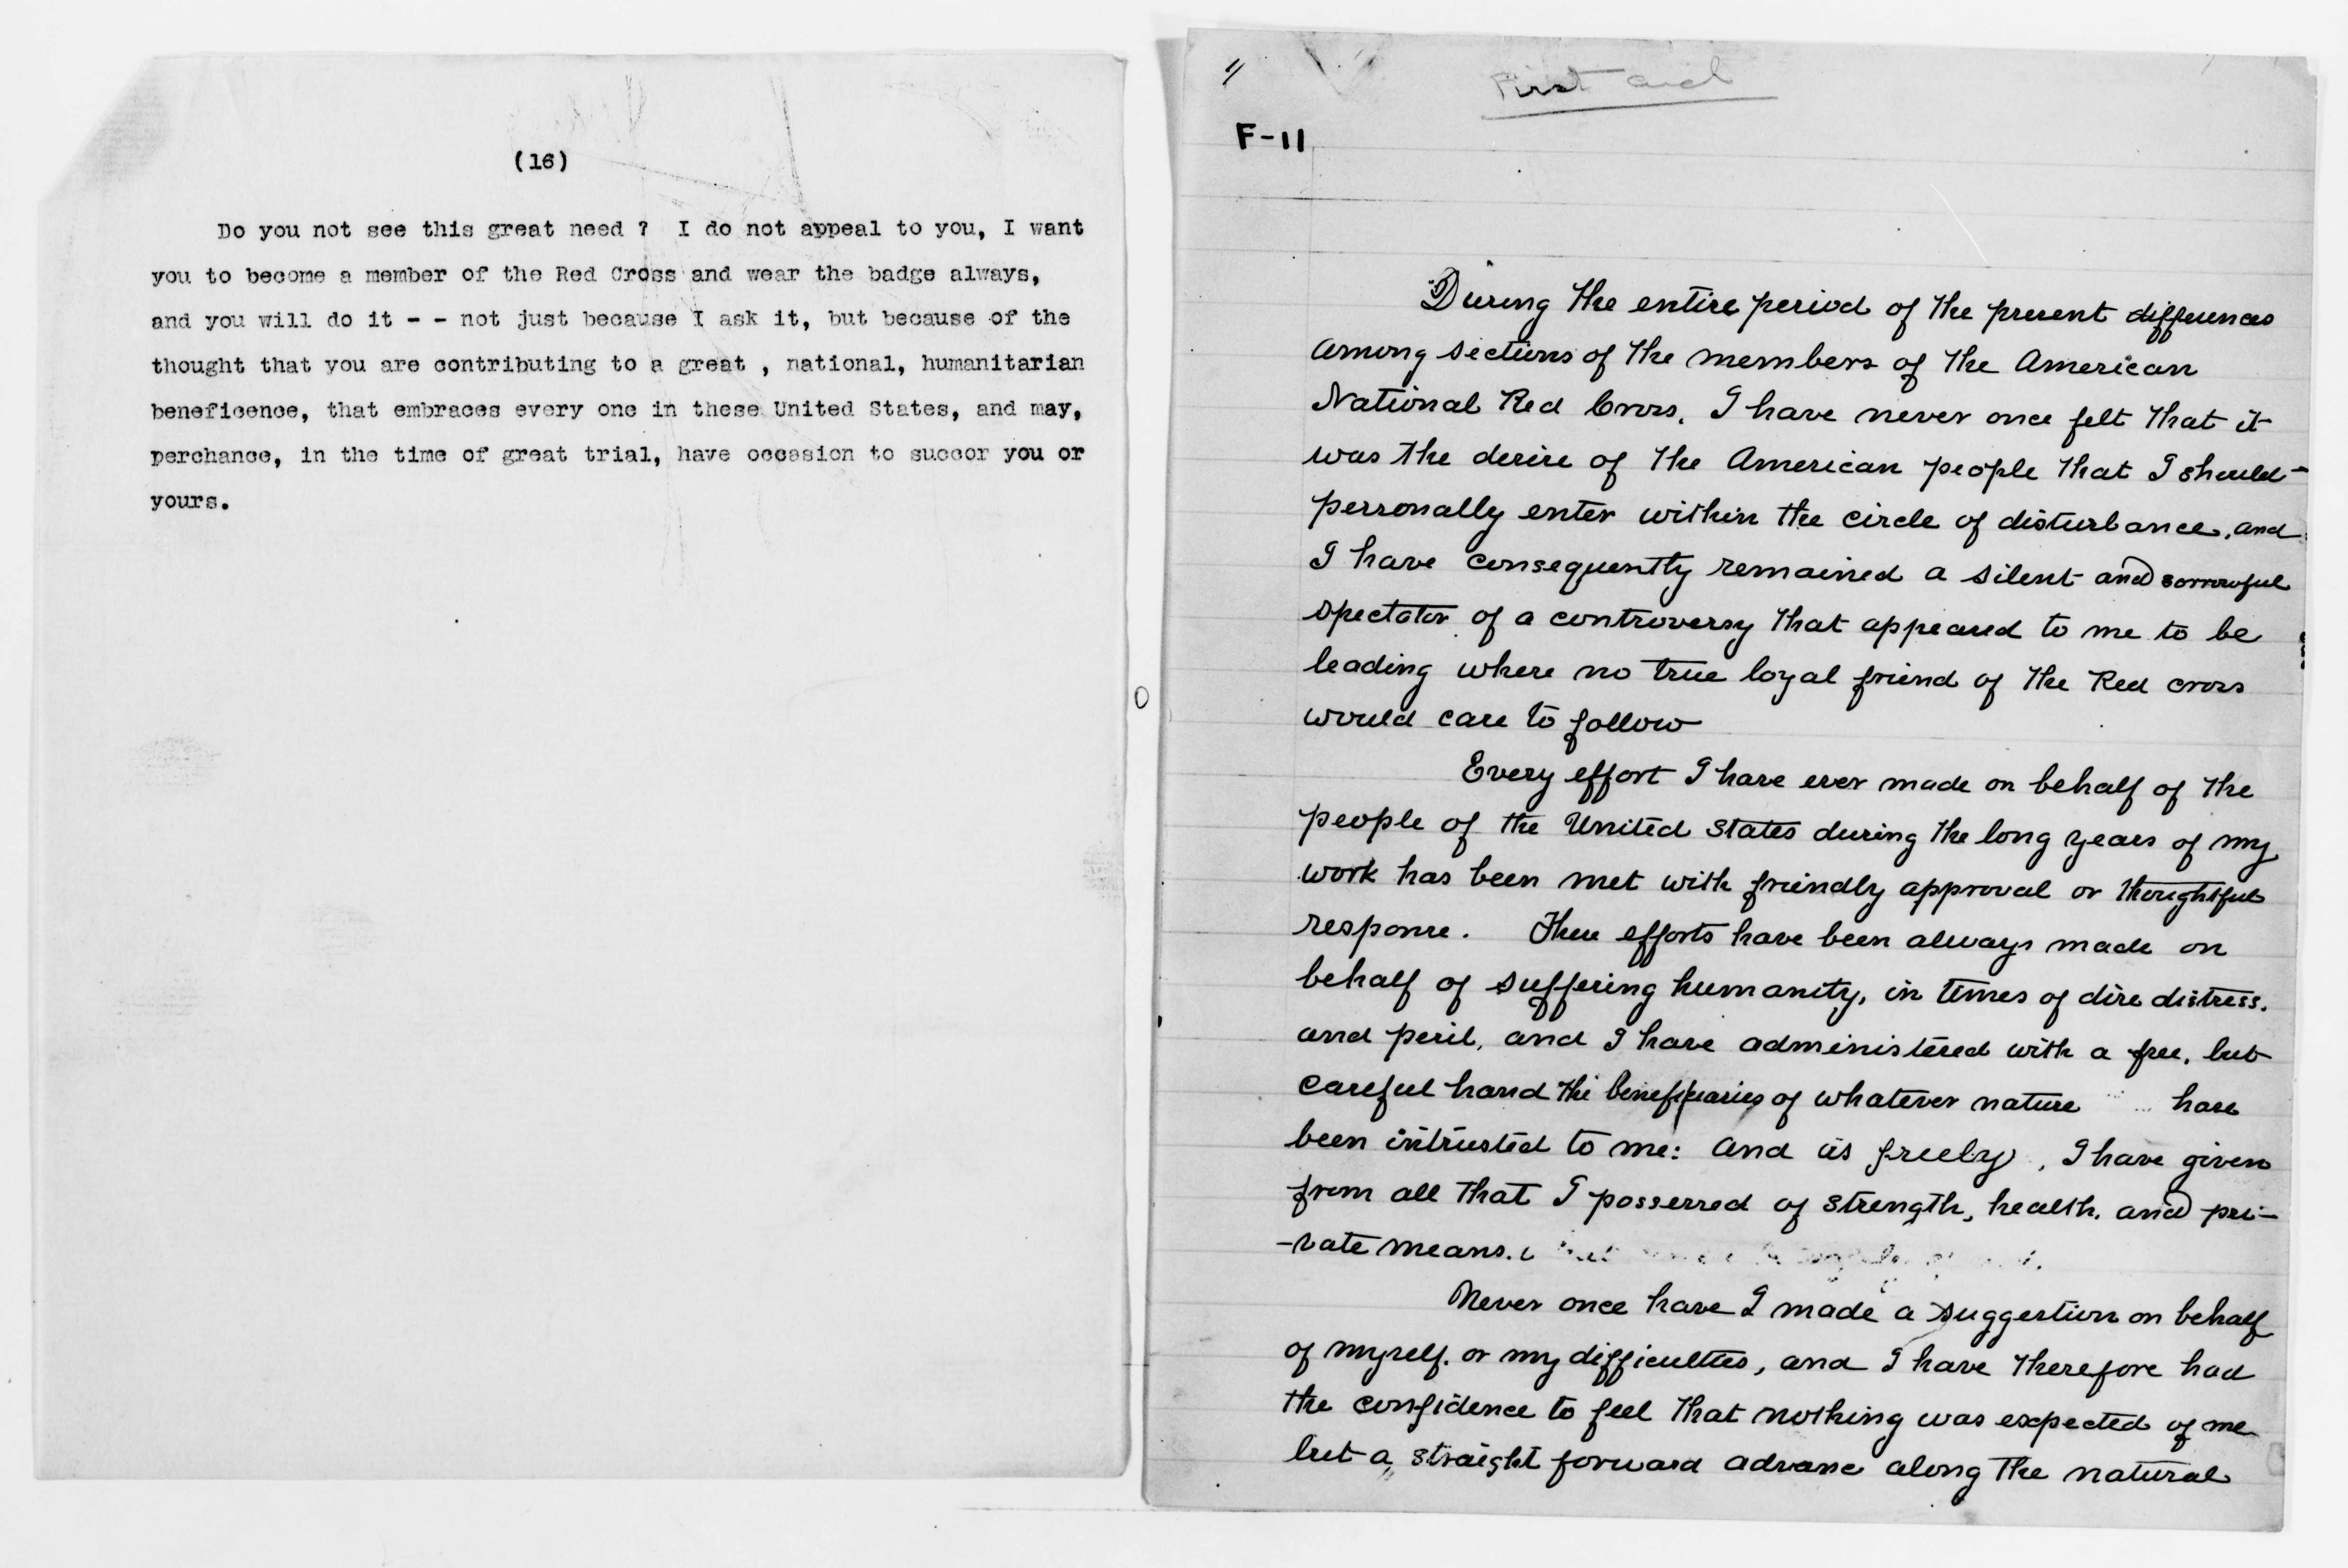 (16)
Do you not see this great need ? I do not appeal to you, I want
you to become a member of the Red Cross and wear the badge always,
and you will do it - - not just because I ask it, but because of the
thought that you are contributing to a great , national, humanitarian
beneficence, that embraces every one in these United States, and may,
perchance, in the time of great trial, have occasion to succor you or
yours.
First aid
F-11
During the entire period of the present differences
among sections of the members of the American
National Red Cross, I have never once felt that it
was the desire of the American people that I should
personally enter within the circle of disturbance, and
I have consequently remained a silent and sorrowful
spectator of a controversy that appeared to me to be
leading where no true loyal friend of the Red cross
would care to follow
Every effort I have ever made on behalf of the
people of the United States during the long years of my
work has been met with friendly approval or thoughtful
response. These efforts have been always made on
behalf of suffering humanity, in times of dire distress.
and peril, and I have administered with a free, but
careful hand the beneficiaries of whatever nature have
been intrusted to me: and as freely, I have given
from all that I possessed of strength, health, and pri-
-vate means.
Never once have I made a suggestion on behalf
of myself. or my difficulties, and I have therefore had
the confidence to feel that nothing was expected of me
but a straight forward advance along the natural